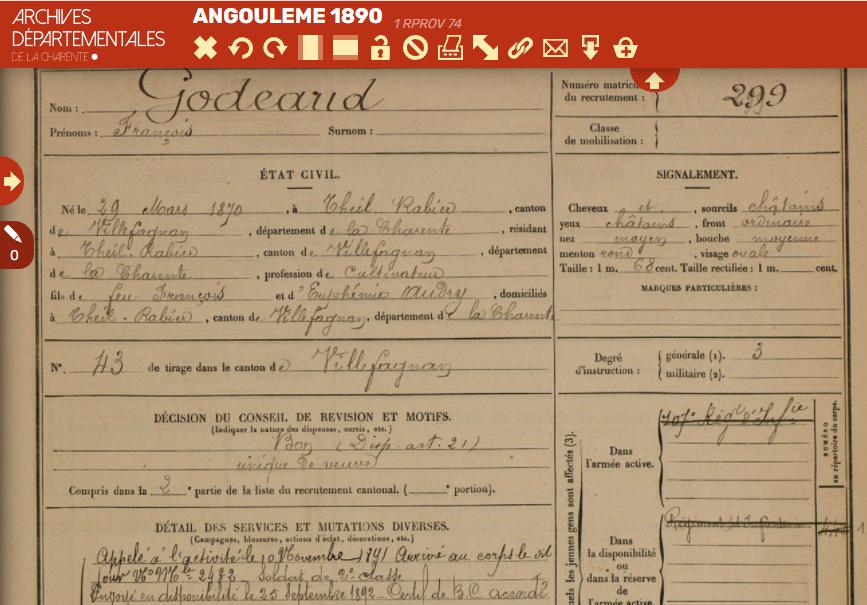 ARCHIVES
DÉPARTEMENTALES
DE LA CHARENTE
ANGOULEME 1890 1 RPROV 74
0
Nom : Godeard
Prénoms : François Surnom :
Numéro matricule
du recrutement : 299
Classe
de mobilisation :
ÉTAT CIVIL.
Né le 29 Mars 1870, à Theil Rabier, canton
de Villefagnan, département de la Charente, résidant
à Theil-Rabier, canton de Villefagnan, département
de la Charente, profession de Cultivateur
fils de feu François et d'Euphémie Audry, domiciliés
à Theil-Rabier, canton de Villefagnan, département de la Charente
SIGNALEMENT.
Cheveux et, sourcils châtains
yeux châtains, front ordinaire
nez moyen, bouche moyenne
menton rond, visage ovale
Taille : 1 m. 68 cent. Taille rectifiée : 1 m. cent.
MARQUES PARTICULIÈRES :
N°. 43 de tirage dans le canton de Villefagnan
Degré
d'instruction :
générale (1). 3
militaire (2).
DÉCISION DU CONSEIL DE REVISION ET MOTIFS.
(Indiquer la nature des dispenses, sursis, etc.)
Bon (Disp. art. 21)
unique de veuve
Compris dans la 2e partie de la liste du recrutement cantonal. ( e portion).
DÉTAIL DES SERVICES ET MUTATIONS DIVERSES.
(Campagnes, blessures, actions d'éclat, décorations, etc.)
Appelé à l'activité le 10 Novembre 1891 Arrivé au corps le dit
jour N° Mle 2482 Soldat de 2e classe
Envoyé en disponibilité le 25 Septembre 1892 - Certif de B.C accordé.
107e Régt d'Infie
Dans
l'armée active.
NUMÉRO
au répertoire du corps.
Régiment d'Infanterie
Dans
la disponibilité
ou
dans la réserve
de
l'armée active
les jeunes gens sont affectés (3).